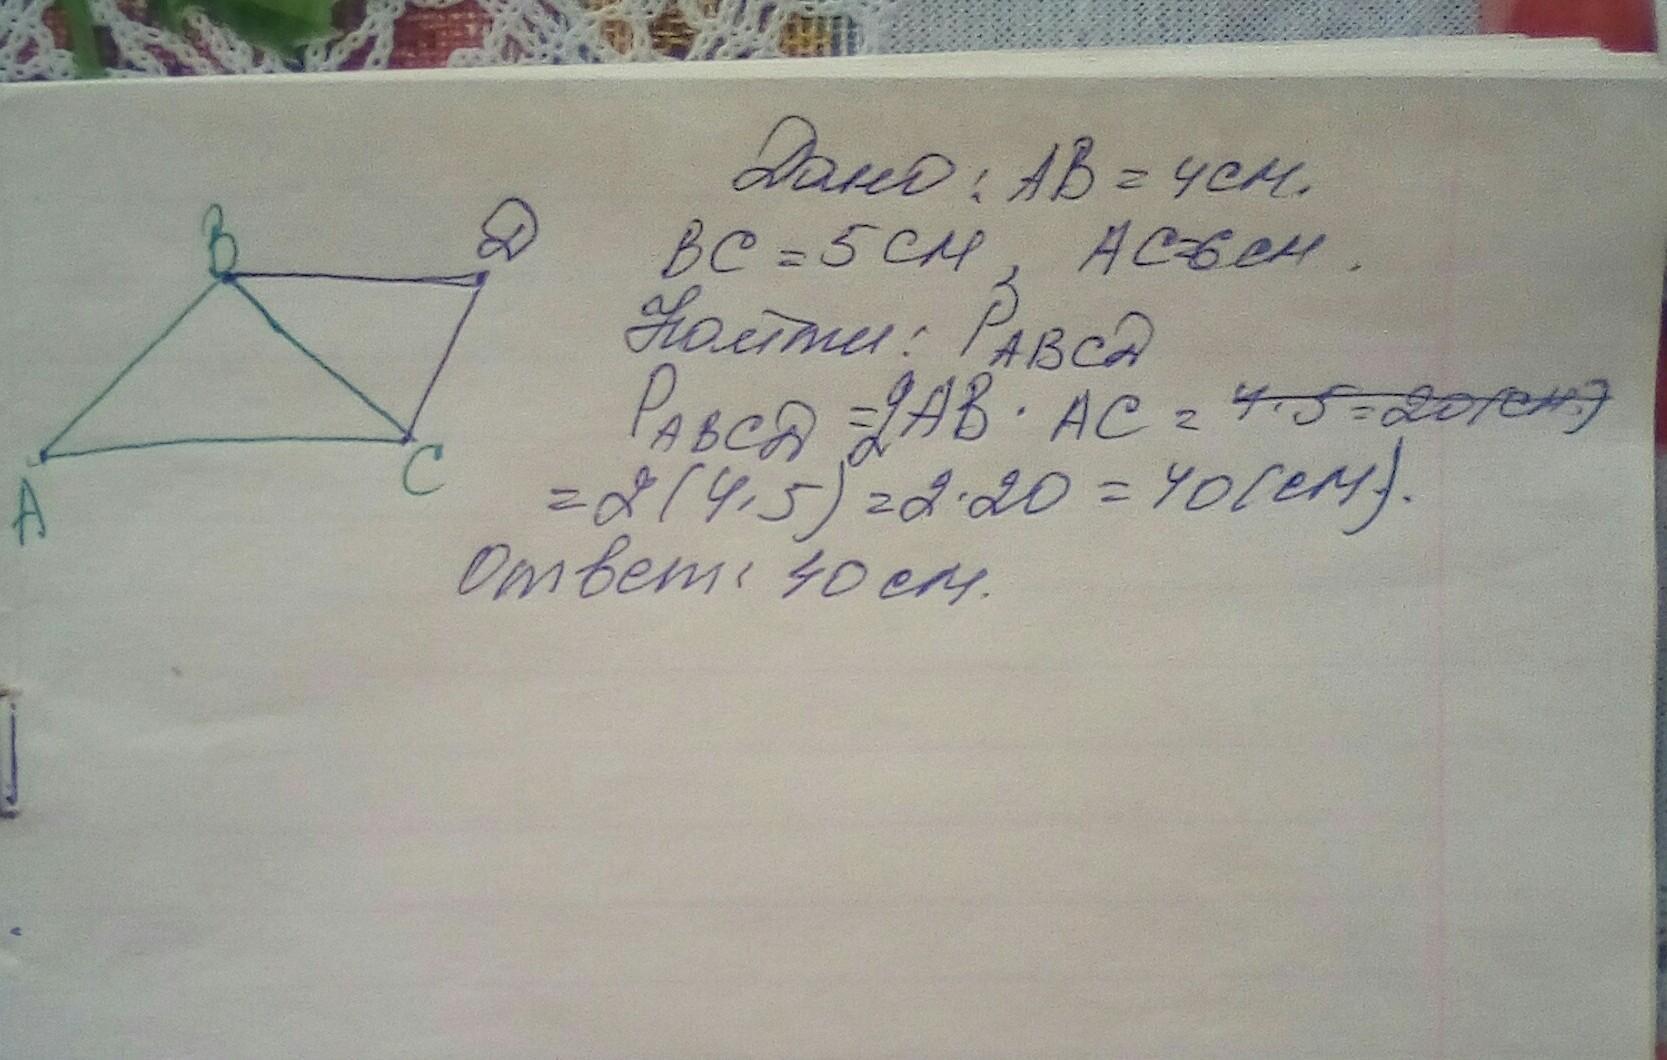 B
Д
A
C
Дано: AB = 4см.
BC = 5 см, AC=6см.
Найти: P ABCД
P ABCД = 2AB · AC = 4·5=20(см.)
= 2(4·5) = 2·20 = 40(см).
Ответ: 40 см.